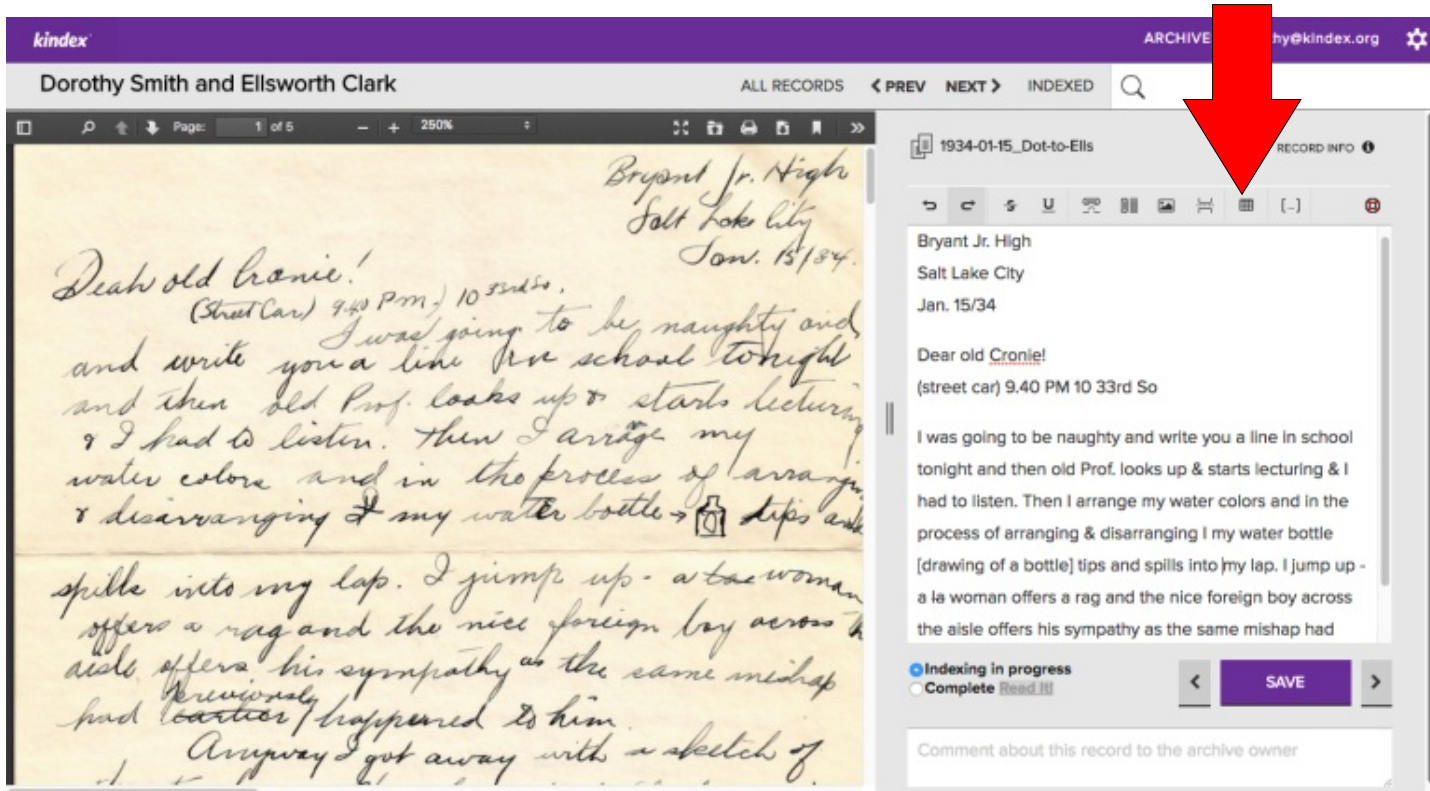 kindex
ARCHIVE
hy@kindex.org
Dorothy Smith and Ellsworth Clark
ALL RECORDS
PREV
NEXT
INDEXED
Page: 1 of 5
250%
Bryant Jr. High
Salt Lake City
Jan. 15/34.
Deah old Cronie!
(Street Car) 9.40 P.m.) 10 33rd So.
I was going to be naughty and
and write you a line in school tonight
and then old Prof. looks up & starts lecturing
& I had to listen. Then I arrage my
water colors and in the process of arranging
& disarranging I my water bottle → tips and
spills into my lap. I jump up - a woman
offers a rag and the nice foreign boy across
aisle offers his sympathy as the same mishap
previously
had earlier happened to him.
Anyway I got away with a sketch of
1934-01-15_Dot-to-Ells
RECORD INFO
Bryant Jr. High
Salt Lake City
Jan. 15/34
Dear old Cronie!
(street car) 9.40 PM 10 33rd So
I was going to be naughty and write you a line in school
tonight and then old Prof. looks up & starts lecturing & I
had to listen. Then I arrange my water colors and in the
process of arranging & disarranging I my water bottle
[drawing of a bottle] tips and spills into my lap. I jump up -
a la woman offers a rag and the nice foreign boy across
the aisle offers his sympathy as the same mishap had
Indexing in progress
Complete Read It!
SAVE
Comment about this record to the archive owner